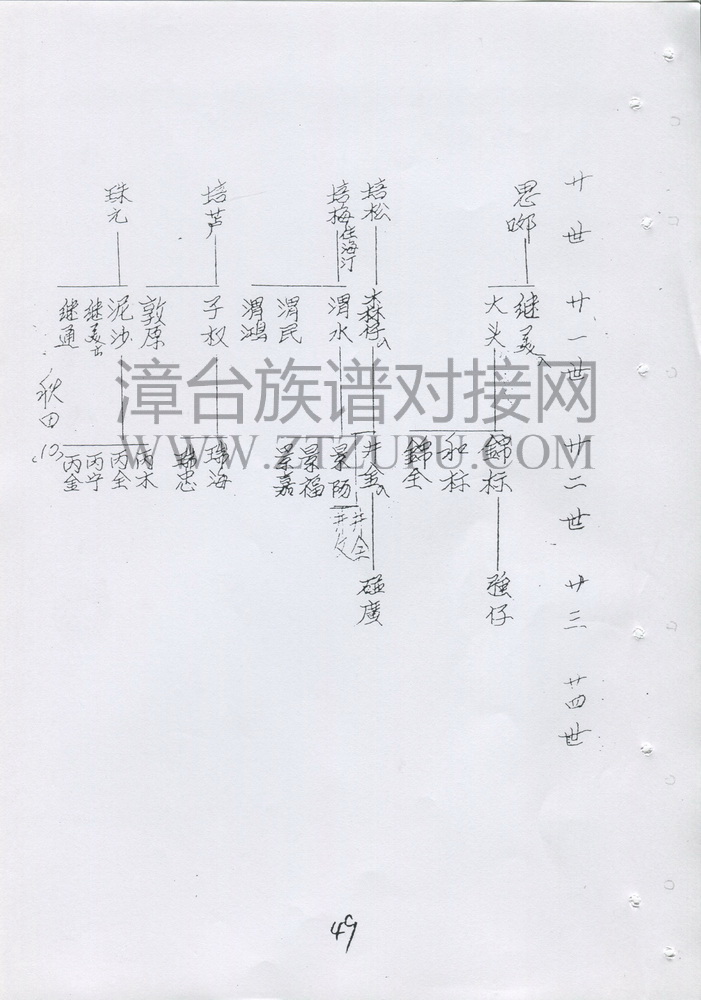 廿世
廿一世
廿二世
廿三
廿四世
思
继美
大头
錦标
和标
錦全
強仔
培松
木森仔
井全
碰廣
培梅住海汀
渭水
渭民
渭鴻
景陽
景福
景嘉
井全
培芦
子权
敦原
珠海
珠忠
珠元
泥沙
继美
继通
丙木
丙全
丙宁
丙金
秋田
(10)
漳台族谱对接网
WWW.ZTZUPU.COM
49